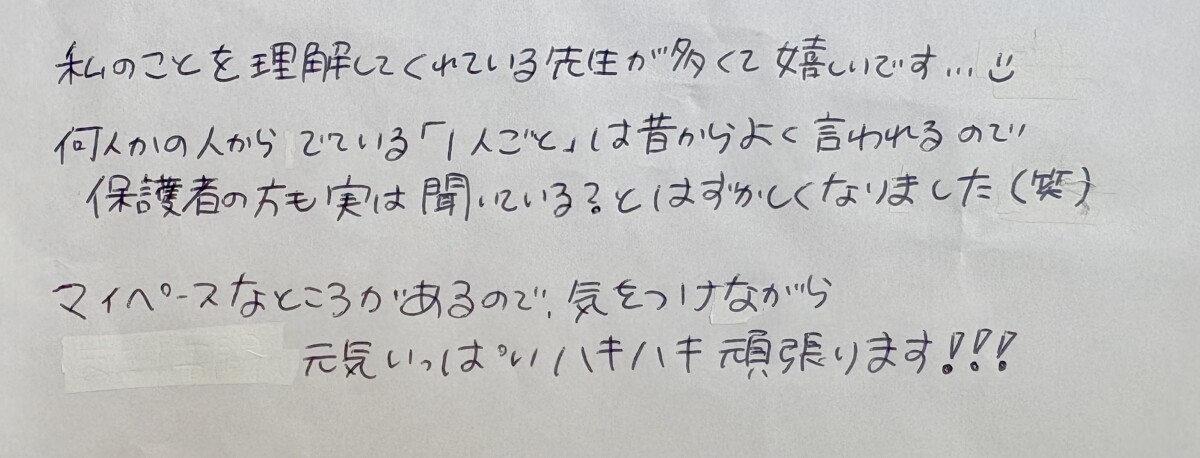 私のことを理解してくれている先生が多くて嬉しいです…
何人かの人からでている「1人ごと」は昔からよく言われるので
保護者の方も実は聞いている?とはずかしくなりました(笑)
マイペースなところがあるので、気をつけながら
元気いっぱいハキハキ頑張ります!!!